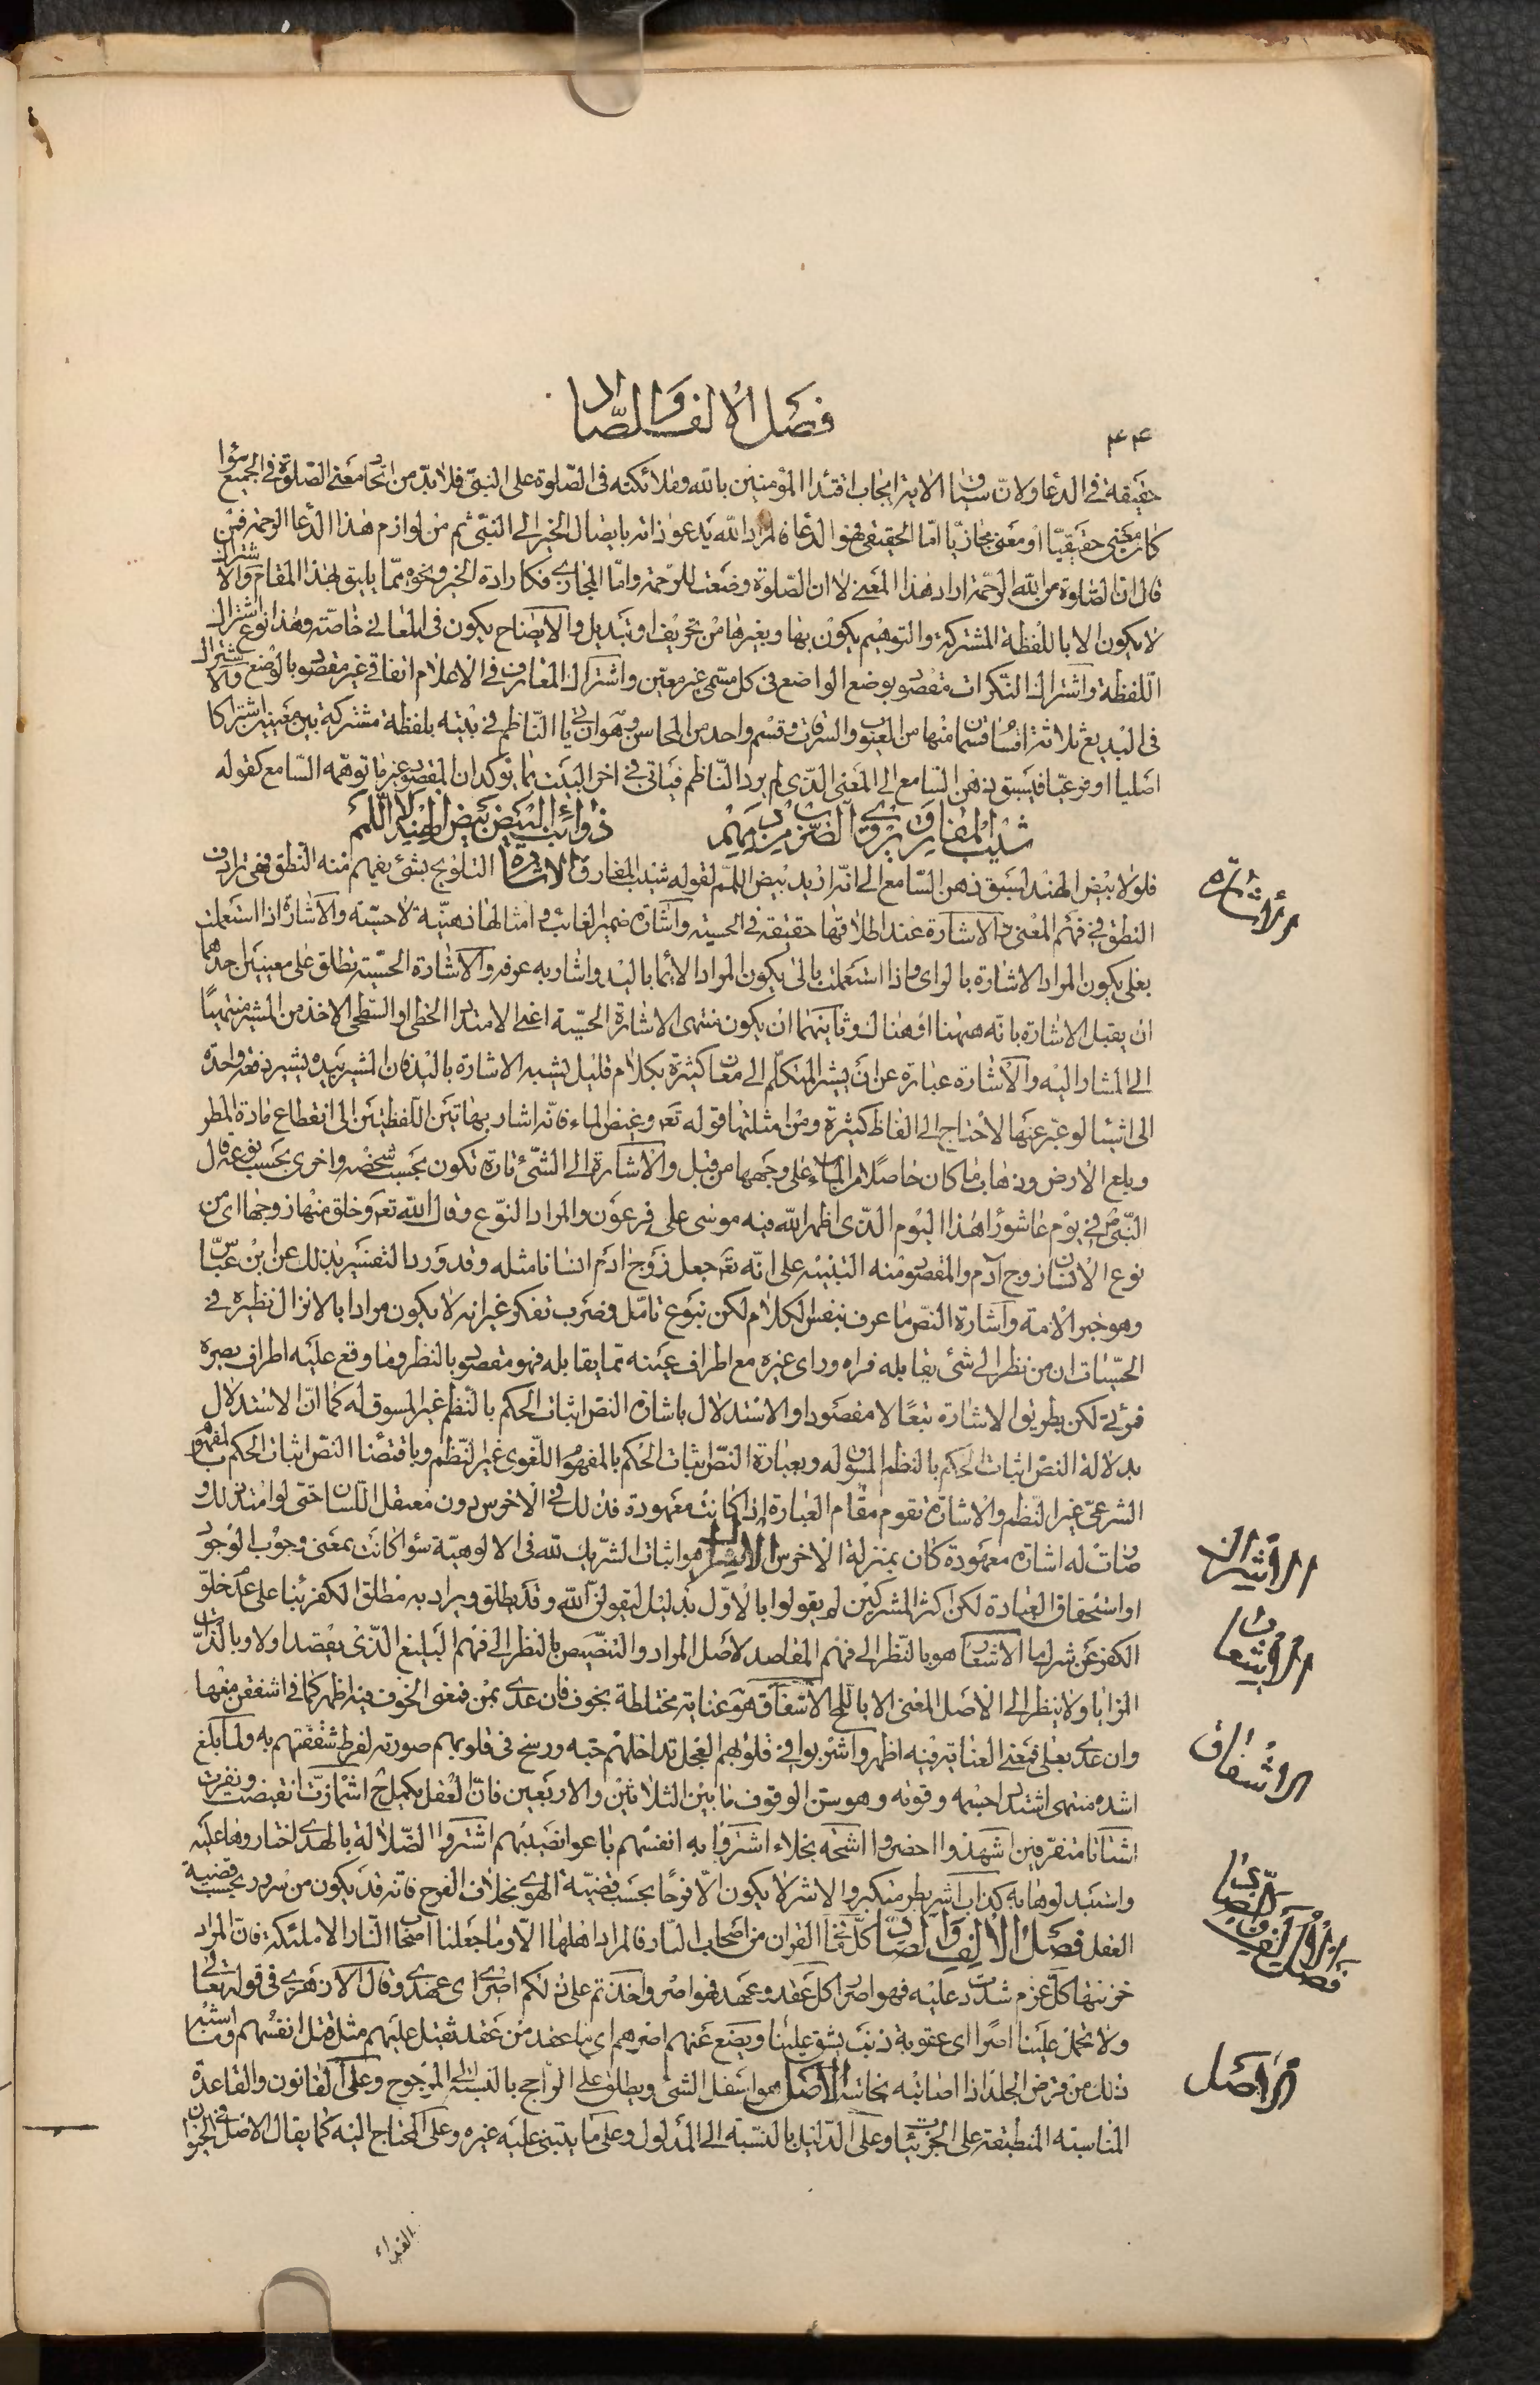 فصل الالف والصاد
۴۴
حقيقة فى الدعا ولان سياق الاية ايجاب اقتدا المؤمنين بالله وملائكته فى الصلوة على النبى فلا بد من اتحاد معنى الصلوة فى الجميع سوا
كان معنى حقيقيا او معنى مجازيا اما الحقيقى فهو الدعا فالمراد الله يدعو ذاته بايصال الخير الى النبى ثم من لوازم هذا الدعا الرحمة فمن
قال ان الصلوة من الله الرحمة اراد هذا المعنى لا ان الصلوة وضعت للرحمة واما المجازى فكارادة الخير ونحوه مما يليق بهذا المقام والاشتراك
لا يكون الا باللفظة المشتركة والتوهيم يكون بها وبغيرها من تحريف او تبديل والايضاح يكون فى المعانى خاصة وهذا نوع اشتراك
اللفظة واشتراك النكرات مقصود بوضع الواضع فى كل مسمى غير معين واشتراك المعارف فى الاعلام اتفاقى غير مقصود بالوضع والاشتراك
فى البديع ثلاثة اقسام قسمان منها من العيوب والسرقات وقسم واحد من المحاسن وهو ان ياتى الناظم فى بيته بلفظة مشتركة بين معنيين اشتراكا
اصليا او فرعيا فيسبق ذهن السامع الى المعنى الذى لم يرد الناظم فياتى فى اخر البيت بما يؤكد ان المقصود غير ما توهمه السامع كقوله
شيب المفارق يروى الضرب من دمهم ذوائب البيض بيض الهند لا اللمم
فلولا بيض الهند لسبق ذهن السامع الى انه اراد بيض اللمم لقوله شيب المفارق الاشارة التلويح بشئ يفهم منه النطق فهى ترادف
النطق فى فهم المعنى والاشارة عند اطلاقها حقيقة فى الحسية واشارة ضمير الغائب وامثالها ذهنية لا حسية والاشارة اذا استعملت
بعلى يكون المراد الاشارة بالراى واذا استعملت بالى يكون المراد الايما باليد واشار به عرفه والاشارة الحسية تطلق على معنيين احدهما
ان يقبل الاشارة بانه ههنا او هناك وثانيهما ان يكون منتهى الاشارة الحسية اعنى الامتداد الخطى او السطحى الاخذ من المشير منتهيا
الى المشار اليه والاشارة عبارة عن ان يشير المتكلم الى معان كثيرة بكلام قليل يشبه الاشارة باليد فان المشير بيده يشير دفعة واحدة
الى اشيا لو عبر عنها لاحتاج الى الفاظ كثيرة ومن امثلتها قوله تعه وغيض الماء فانه اشار بهاتين اللفظتين الى انقطاع مادة المطر
وبلع الارض وذهاب ما كان حاصلا من الماء على وجهها من قبل والاشارة الى الشئ تارة تكون بحسب شخصه واخرى بحسب نوعه قال
النبى ص فى يوم عاشورا هذا اليوم الذى اظهر الله فيه موسى على فرعون والمراد النوع وقال الله تعه وخلق منها زوجها اى من
نوع الانسان زوج آدم والمقصود منه التنبيه على انه تعه جعل زوج ادم انسانا مثله وقد ورد التفسير بذلك عن ابن عباس
وهو حبر الامة واشارة النص ما عرف بنفس الكلام لكن بنوع تامل وضرب تفكر غير انه لا يكون مرادا بالانزال نظيره فى
الحسيات ان من نظر الى شئ يقابله فراه وراى غيره مع اطراف عينه مما يقابله فهو مقصود بالنظر وما وقع عليه اطراف بصره
فمرئى لكن بطريق الاشارة تبعا لا مقصودا والاستدلال باشارة النص اثبات الحكم بالنظم غير المسوق له كما ان الاستدلال
بدلالة النص اثبات الحكم بالنظم المسوق له وبعبارة النص اثبات الحكم بالمفهوم اللغوى غير النظم وباقتضا النص اثبات الحكم بالمفهوم
الشرعى غير النظم والاشارة تقوم مقام العبارة اذا كانت معهودة فذلك فى الاخرس دون معتقل اللسان حتى لو امتد ذلك و
صارت له اشارة معهودة كان بمنزلة الاخرس الاشراك هو اثبات الشريك لله فى الالوهية سوا كانت بمعنى وجوب الوجود
او استحقاق العبادة لكن اكثر المشركين لم يقولوا بالاول بدليل ليقولن الله وقد يطلق ويراد به مطلق الكفر بنا على عدم خلو
الكفر عن شرك ما الاشعار هو بالنظر الى فهم المقاصد لاصل المراد والتنصيص بالنظر الى فهم البليغ الذى يقصد اولا وبالذات
المزايا ولا ينظر الى الاصل المعنى الا باللمح الاشفاق هو عناية مختلطة بخوف فان عدى بمن فمعنى الخوف فيه اظهر كما فى اشفقن منها
وان عدى بعلى فمعنى العناية فيه اظهر واشربوا فى قلوبهم العجل تداخلهم حبه ورسخ فى قلوبهم صورته لفرط شغفهم به ولما بلغ
اشده منتهى اشتداد جسمه وقوته وهو سن الوقوف ما بين الثلاثين والاربعين فان العقل يكمل ح اشمازت انقبضت ونفرت
اشتاتا متفرقين اشهدوا احضروا اشحة بخلاء اشتروا به انفسهم باعوا نصيبهم اشتروا الضلالة بالهدى اختاروها عليه
واستبدلوها به كذاب اشر بطر متكبر والاشر لا يكون الا فرحا بحسب قضية الهوى بخلاف الفرح فانه قد يكون من سرور بحسب قضية
العقل فصل الالف والصاد كل ما فى القران من اصحاب النار فالمراد اهلها الا وما جعلنا اصحاب النار الا ملئكة فان المراد
خزنتها كل عزم شددت عليه فهو اصر كل عقد وعهد فهو اصر واخذتم على ذلكم اصرى اى عهدى وقال الازهرى فى قوله تعالى
ولا تحمل علينا اصرا اى عقوبة ذنب يشق علينا ويضع عنهم اصرهم اى ما عقد من عقد ثقيل عليهم مثل قتل انفسهم وما اشبه
ذلك من قرض الجلد اذا اصابته نجاسة الاصل هو اسفل الشئ ويطلق على الراجح بالنسبة الى المرجوح وعلى القانون والقاعدة
المناسبة المنطبقة على الجزئيات وعلى الدليل بالنسبة الى المدلول وعلى ما يبتنى عليه غيره وعلى المحتاج اليه كما يقال الاصل فى الحيوان
الغذاء
الاشارة
الاشراك
الاشعار
الاشفاق
فصل الالف والصاد
الاصل